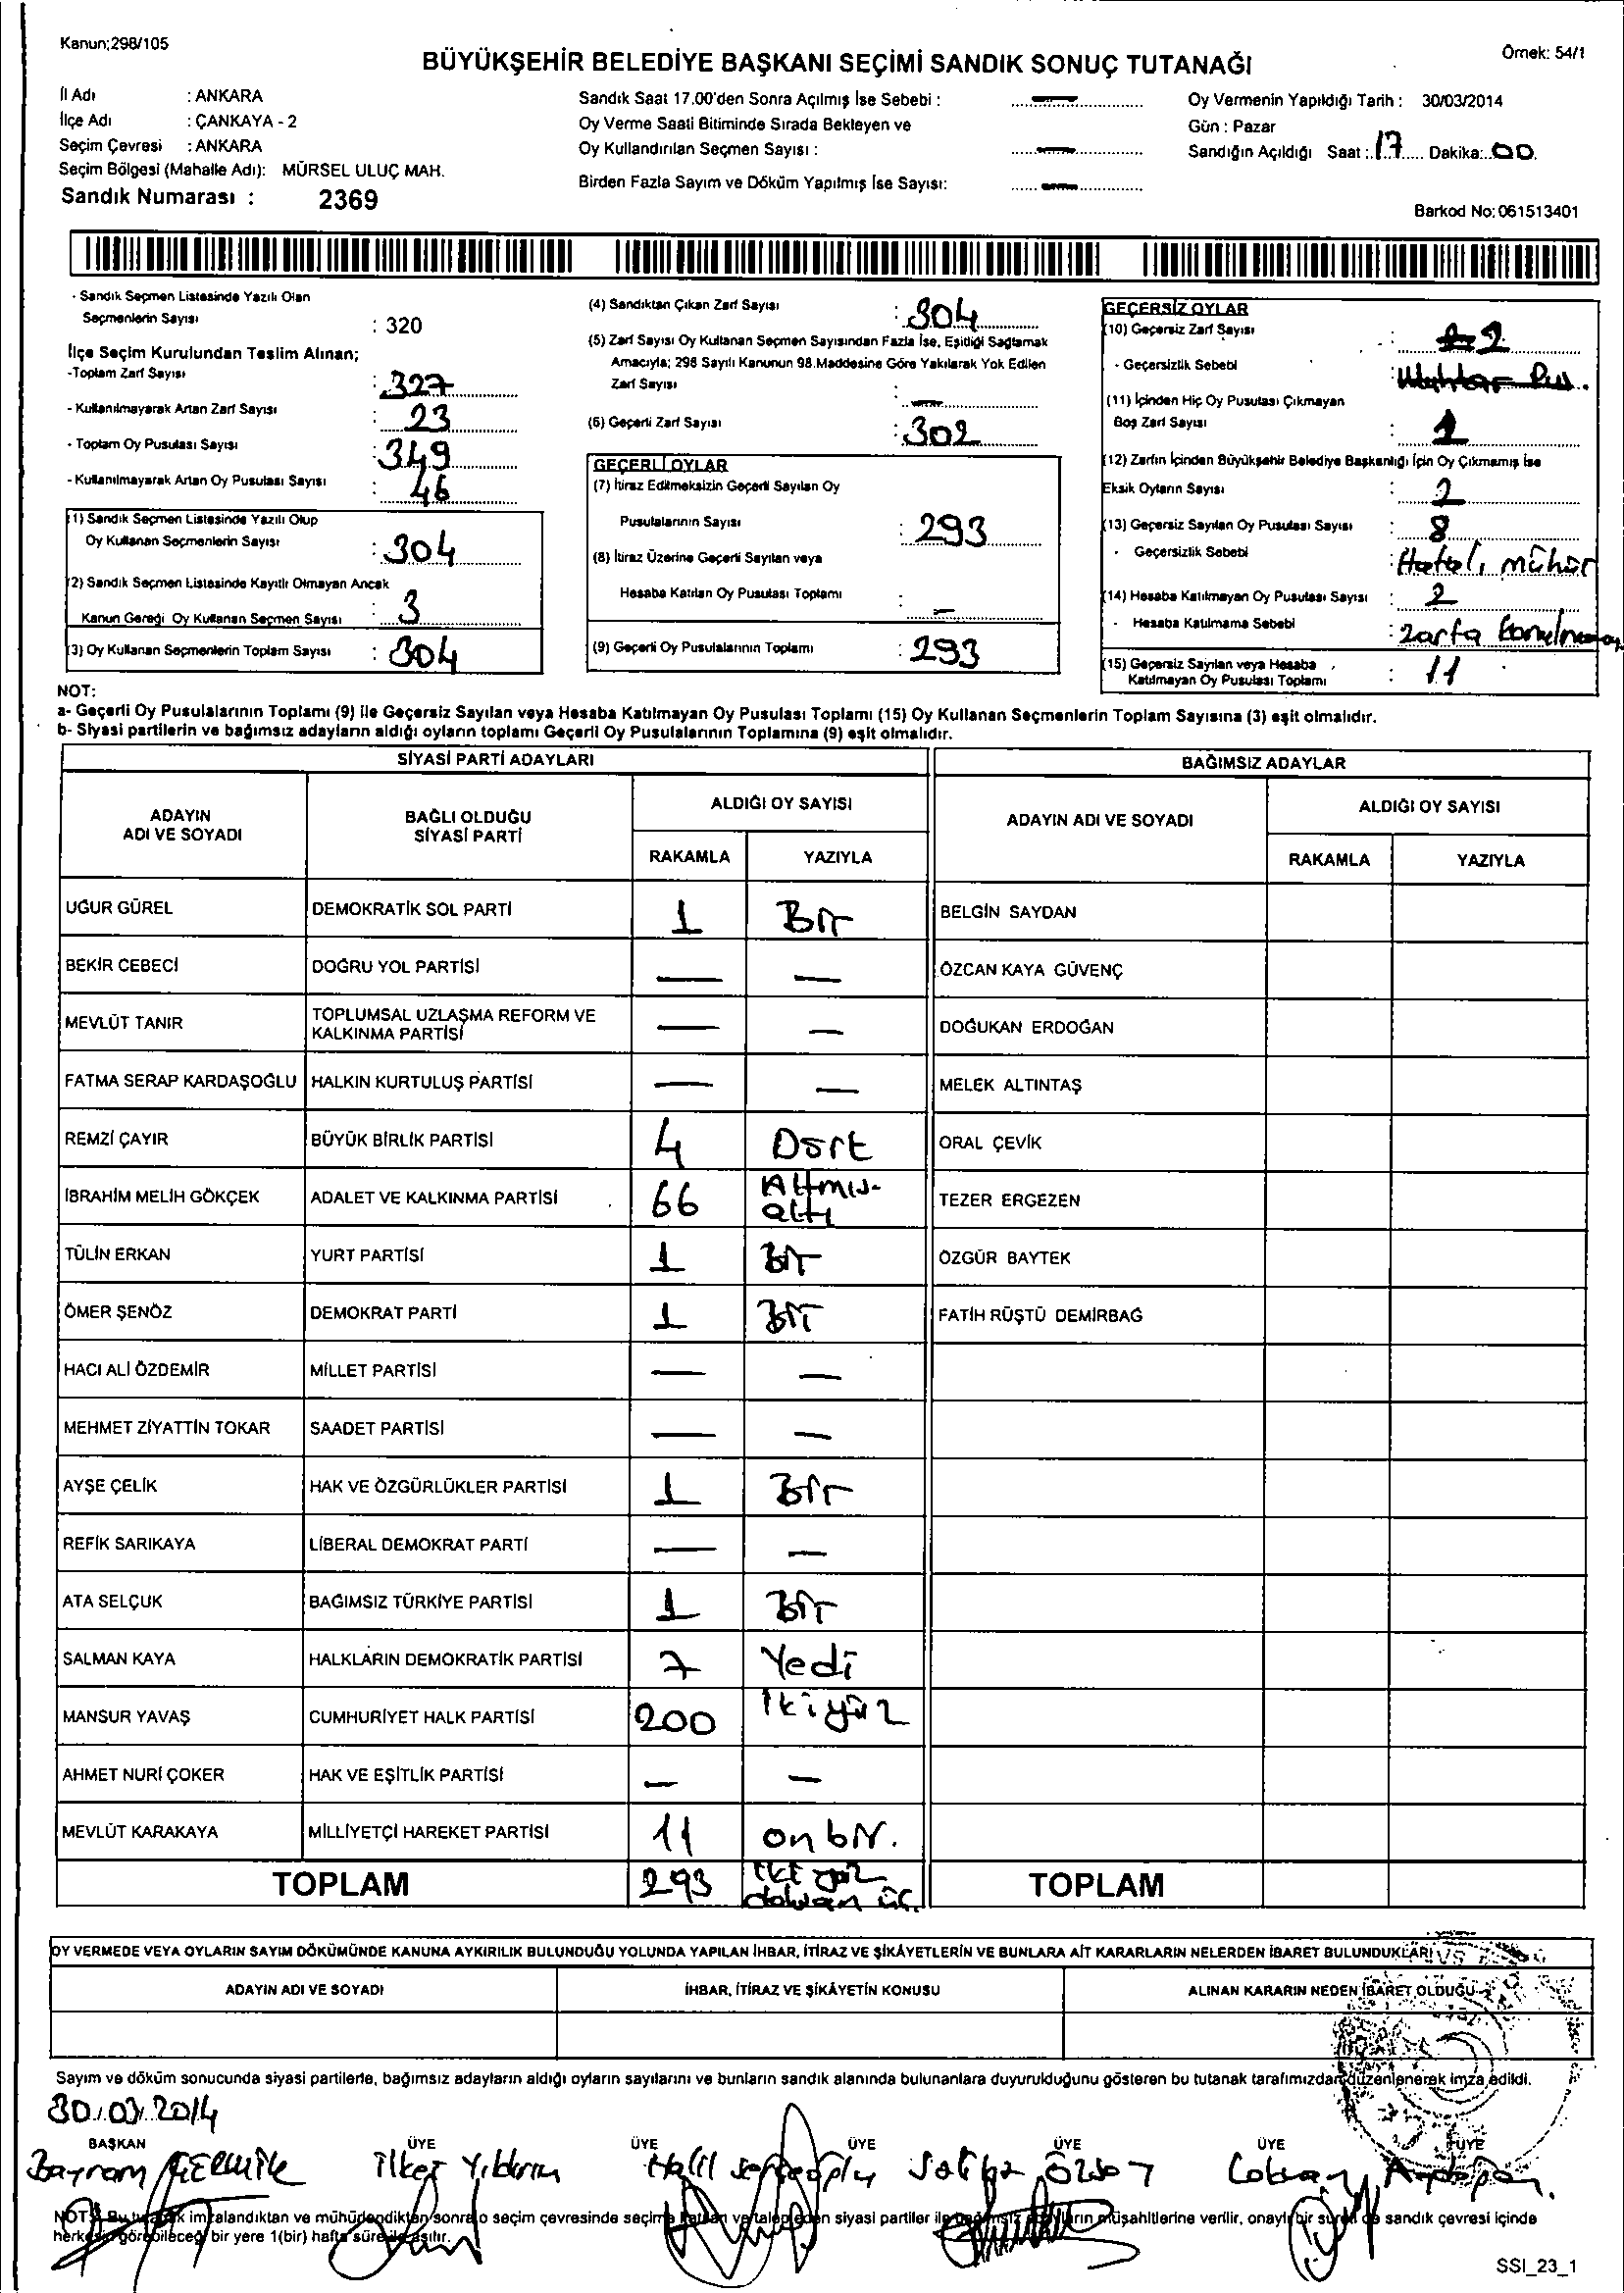 Kanun;298/105
BÜYÜKŞEHİR BELEDİYE BAŞKANI SEÇİMİ SANDIK SONUÇ TUTANAĞI
Örnek: 54/1
İl Adı : ANKARA
İlçe Adı : ÇANKAYA - 2
Seçim Çevresi : ANKARA
Seçim Bölgesi (Mahalle Adı): MÜRSEL ULUÇ MAH.
Sandık Numarası : 2369
Sandık Saat 17.00'den Sonra Açılmış İse Sebebi : —
Oy Verme Saati Bitiminde Sırada Bekleyen ve
Oy Kullandırılan Seçmen Sayısı : —
Birden Fazla Sayım ve Döküm Yapılmış İse Sayısı: —
Oy Vermenin Yapıldığı Tarih : 30/03/2014
Gün : Pazar
Sandığın Açıldığı Saat : 17 Dakika: 00
Barkod No: 061513401
- Sandık Seçmen Listesinde Yazılı Olan
Seçmenlerin Sayısı : 320
İlçe Seçim Kurulundan Teslim Alınan;
-Toplam Zarf Sayısı : 327
- Kullanılmayarak Artan Zarf Sayısı : 23
- Toplam Oy Pusulası Sayısı : 349
- Kullanılmayarak Artan Oy Pusulası Sayısı : 46
(1) Sandık Seçmen Listesinde Yazılı Olup
Oy Kullanan Seçmenlerin Sayısı : 304
(2) Sandık Seçmen Listesinde Kayıtlı Olmayan Ancak
Kanun Gereği Oy Kullanan Seçmen Sayısı : 3
(3) Oy Kullanan Seçmenlerin Toplam Sayısı : 304
(4) Sandıktan Çıkan Zarf Sayısı : 304
(5) Zarf Sayısı Oy Kullanan Seçmen Sayısından Fazla İse, Eşitliği Sağlamak
Amacıyla; 298 Sayılı Kanunun 98.Maddesine Göre Yakılarak Yok Edilen
Zarf Sayısı : —
(6) Geçerli Zarf Sayısı : 302
GEÇERLİ OYLAR
(7) İtiraz Edilmeksizin Geçerli Sayılan Oy
Pusulalarının Sayısı : 293
(8) İtiraz Üzerine Geçerli Sayılan veya
Hesaba Katılan Oy Pusulası Toplamı : —
(9) Geçerli Oy Pusulalarının Toplamı : 293
GEÇERSİZ OYLAR
(10) Geçersiz Zarf Sayısı : 2
- Geçersizlik Sebebi : Muhtar Pus.
(11) İçinden Hiç Oy Pusulası Çıkmayan
Boş Zarf Sayısı : 1
(12) Zarfın İçinden Büyükşehir Belediye Başkanlığı İçin Oy Çıkmamış İse
Eksik Oyların Sayısı : 2
(13) Geçersiz Sayılan Oy Pusulası Sayısı : 8
- Geçersizlik Sebebi : Hatalı mühür
(14) Hesaba Katılmayan Oy Pusulası Sayısı : 2
- Hesaba Katılmama Sebebi : zarfa
(15) Geçersiz Sayılan veya Hesaba
Katılmayan Oy Pusulası Toplamı : 11
NOT:
a- Geçerli Oy Pusulalarının Toplamı (9) ile Geçersiz Sayılan veya Hesaba Katılmayan Oy Pusulası Toplamı (15) Oy Kullanan Seçmenlerin Toplam Sayısına (3) eşit olmalıdır.
b- Siyasi partilerin ve bağımsız adayların aldığı oyların toplamı Geçerli Oy Pusulalarının Toplamına (9) eşit olmalıdır.
SİYASİ PARTİ ADAYLARI
BAĞIMSIZ ADAYLAR
ADAYIN
ADI VE SOYADI
BAĞLI OLDUĞU
SİYASİ PARTİ
ALDIĞI OY SAYISI
RAKAMLA YAZIYLA
ADAYIN ADI VE SOYADI
ALDIĞI OY SAYISI
RAKAMLA YAZIYLA
UĞUR GÜREL DEMOKRATİK SOL PARTİ 1 Bir BELGİN SAYDAN
BEKİR CEBECİ DOĞRU YOL PARTİSİ — — ÖZCAN KAYA GÜVENÇ
MEVLÜT TANIR TOPLUMSAL UZLAŞMA REFORM VE
KALKINMA PARTİSİ — — DOĞUKAN ERDOĞAN
FATMA SERAP KARDAŞOĞLU HALKIN KURTULUŞ PARTİSİ — — MELEK ALTINTAŞ
REMZİ ÇAYIR BÜYÜK BİRLİK PARTİSİ 4 Dört ORAL ÇEVİK
İBRAHİM MELİH GÖKÇEK ADALET VE KALKINMA PARTİSİ 66 Altmış-
altı TEZER ERGEZEN
TÜLİN ERKAN YURT PARTİSİ 1 Bir ÖZGÜR BAYTEK
ÖMER ŞENÖZ DEMOKRAT PARTİ 1 Bir FATİH RÜŞTÜ DEMİRBAĞ
HACI ALİ ÖZDEMİR MİLLET PARTİSİ — —
MEHMET ZİYATTİN TOKAR SAADET PARTİSİ — —
AYŞE ÇELİK HAK VE ÖZGÜRLÜKLER PARTİSİ 1 Bir
REFİK SARIKAYA LİBERAL DEMOKRAT PARTİ — —
ATA SELÇUK BAĞIMSIZ TÜRKİYE PARTİSİ 1 Bir
SALMAN KAYA HALKLARIN DEMOKRATİK PARTİSİ 7 Yedi
MANSUR YAVAŞ CUMHURİYET HALK PARTİSİ 200 İkiyüz
AHMET NURİ ÇOKER HAK VE EŞİTLİK PARTİSİ — —
MEVLÜT KARAKAYA MİLLİYETÇİ HAREKET PARTİSİ 11 onbir.
TOPLAM 293 iki yüz
doksan üç. TOPLAM
OY VERMEDE VEYA OYLARIN SAYIM DÖKÜMÜNDE KANUNA AYKIRILIK BULUNDUĞU YOLUNDA YAPILAN İHBAR, İTİRAZ VE ŞİKÂYETLERİN VE BUNLARA AİT KARARLARIN NELERDEN İBARET BULUNDUKLARI
ADAYIN ADI VE SOYADI İHBAR, İTİRAZ VE ŞİKÂYETİN KONUSU ALINAN KARARIN NEDEN İBARET OLDUĞU
Sayım ve döküm sonucunda siyasi partilerle, bağımsız adayların aldığı oyların sayılarını ve bunların sandık alanında bulunanlara duyurulduğunu gösteren bu tutanak tarafımızdan düzenlenerek imza edildi.
30.03.2014
BAŞKAN ÜYE ÜYE ÜYE ÜYE ÜYE ÜYE
Bayram İlker Yıldırım Halil Saliha Özsoy
NOT: Bu tutanak imzalandıktan ve mühürlendikten sonra o seçim çevresinde seçime katılan ve talep eden siyasi partiler ile bağımsız adayların müşahitlerine verilir, onaylı bir sureti de sandık çevresi içinde
herkesin görebileceği bir yere 1(bir) hafta süre ile asılır.
SSI_23_1